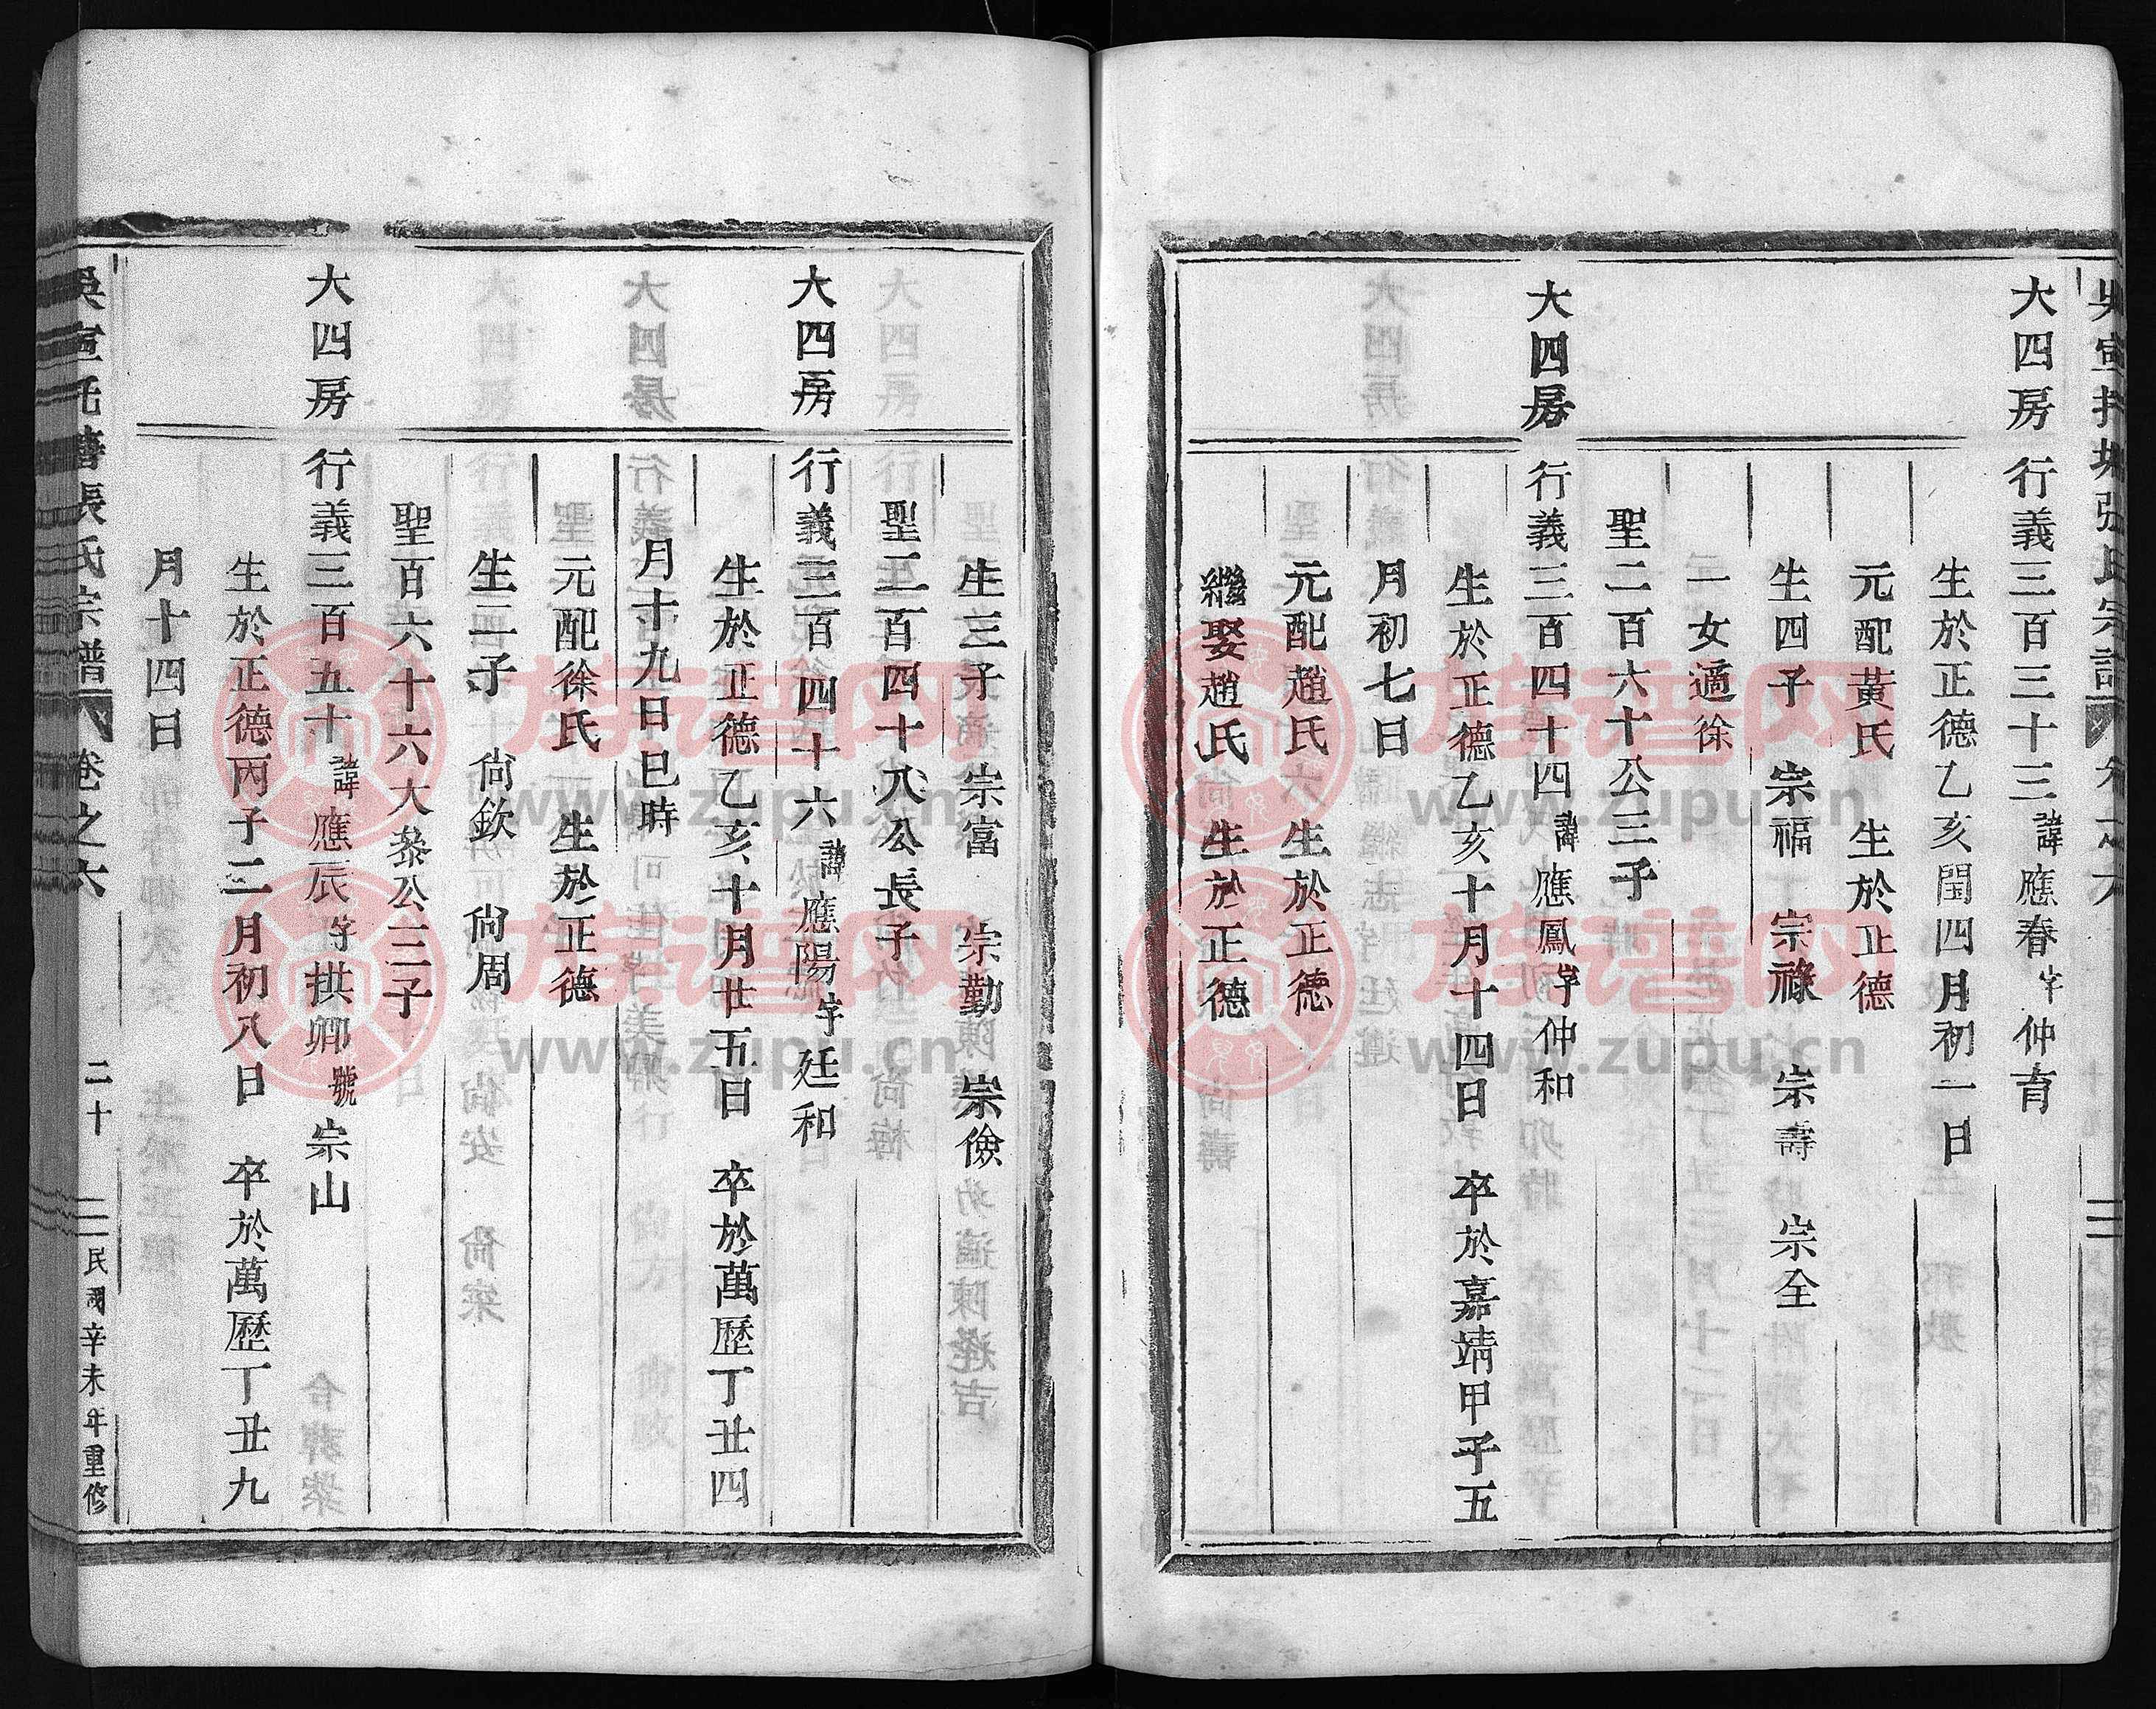 大四房 行義三百三十三諱應春字仲育
生於正德乙亥閏四月初一日
元配黃氏 生於正德
生四子 宗福 宗祿 宗壽 宗全
一女適徐
聖二百六十公三子
大四房 行義三百四十四諱應鳳字仲和
生於正德乙亥十月十四日 卒於嘉靖甲子五
月初七日
元配趙氏 生於正德
繼娶趙氏 生於正德
生三子 宗富 宗勤 宗儉
聖二百四十八公長子
大四房 行義三百四十六諱應陽字廷和
生於正德乙亥十月廿五日 卒於萬歷丁丑四
月十九日巳時
元配徐氏 生於正德
生二子 尙欽 尙周
聖百六十六大叅公三子
大四房 行義三百五十諱應辰字拱卿號宗山
生於正德丙子二月初八日 卒於萬歷丁丑九
月十四日
張氏宗譜 卷之六 二十 民國辛未年重修
族谱网
www.zupu.cn
族谱网
www.zupu.cn
族谱网
www.zupu.cn
族谱网
www.zupu.cn